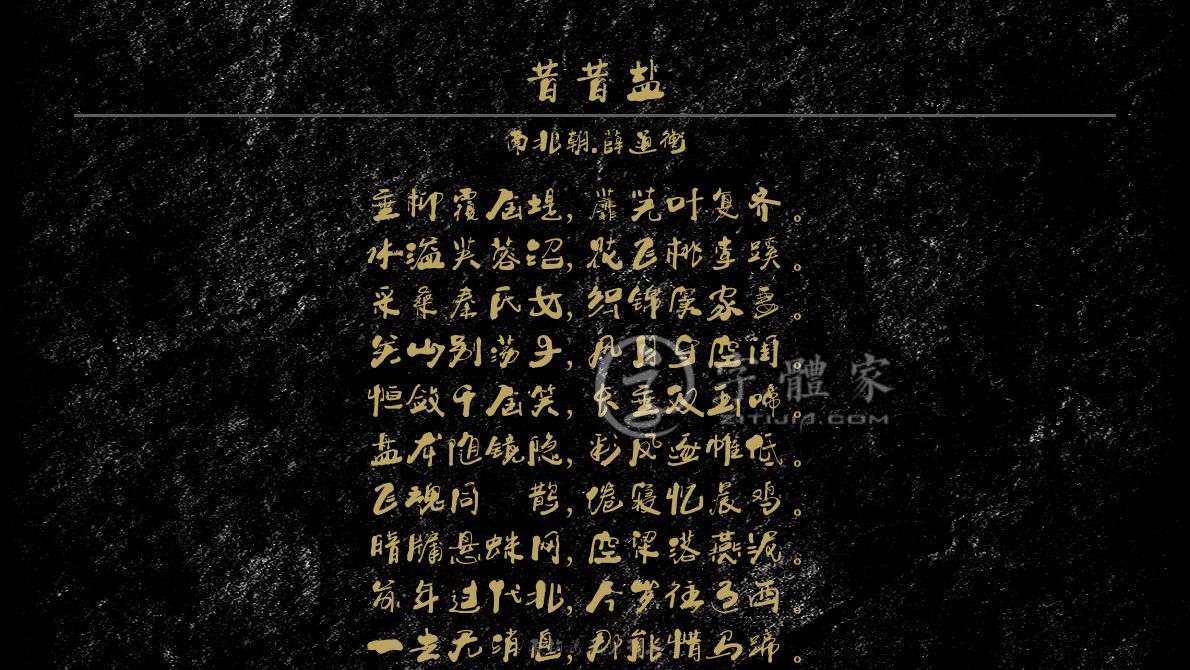 昔昔盐
南北朝.薛道衡
垂柳覆金堤,蘼芜叶复齐。
水溢芙蓉沼,花飞桃李蹊。
采桑秦氏女,织锦窦家妻。
关山别荡子,风月守空闺。
恒敛千金笑,长垂双玉啼。
盘龙随镜隐,彩凤逐帷低。
飞魂同 鹊,倦寝忆晨鸡。
暗牖悬蛛网,空梁落燕泥。
前年过代北,今岁往辽西。
一去无消息,那能惜马蹄。
字體家
ZITIJIA.COM